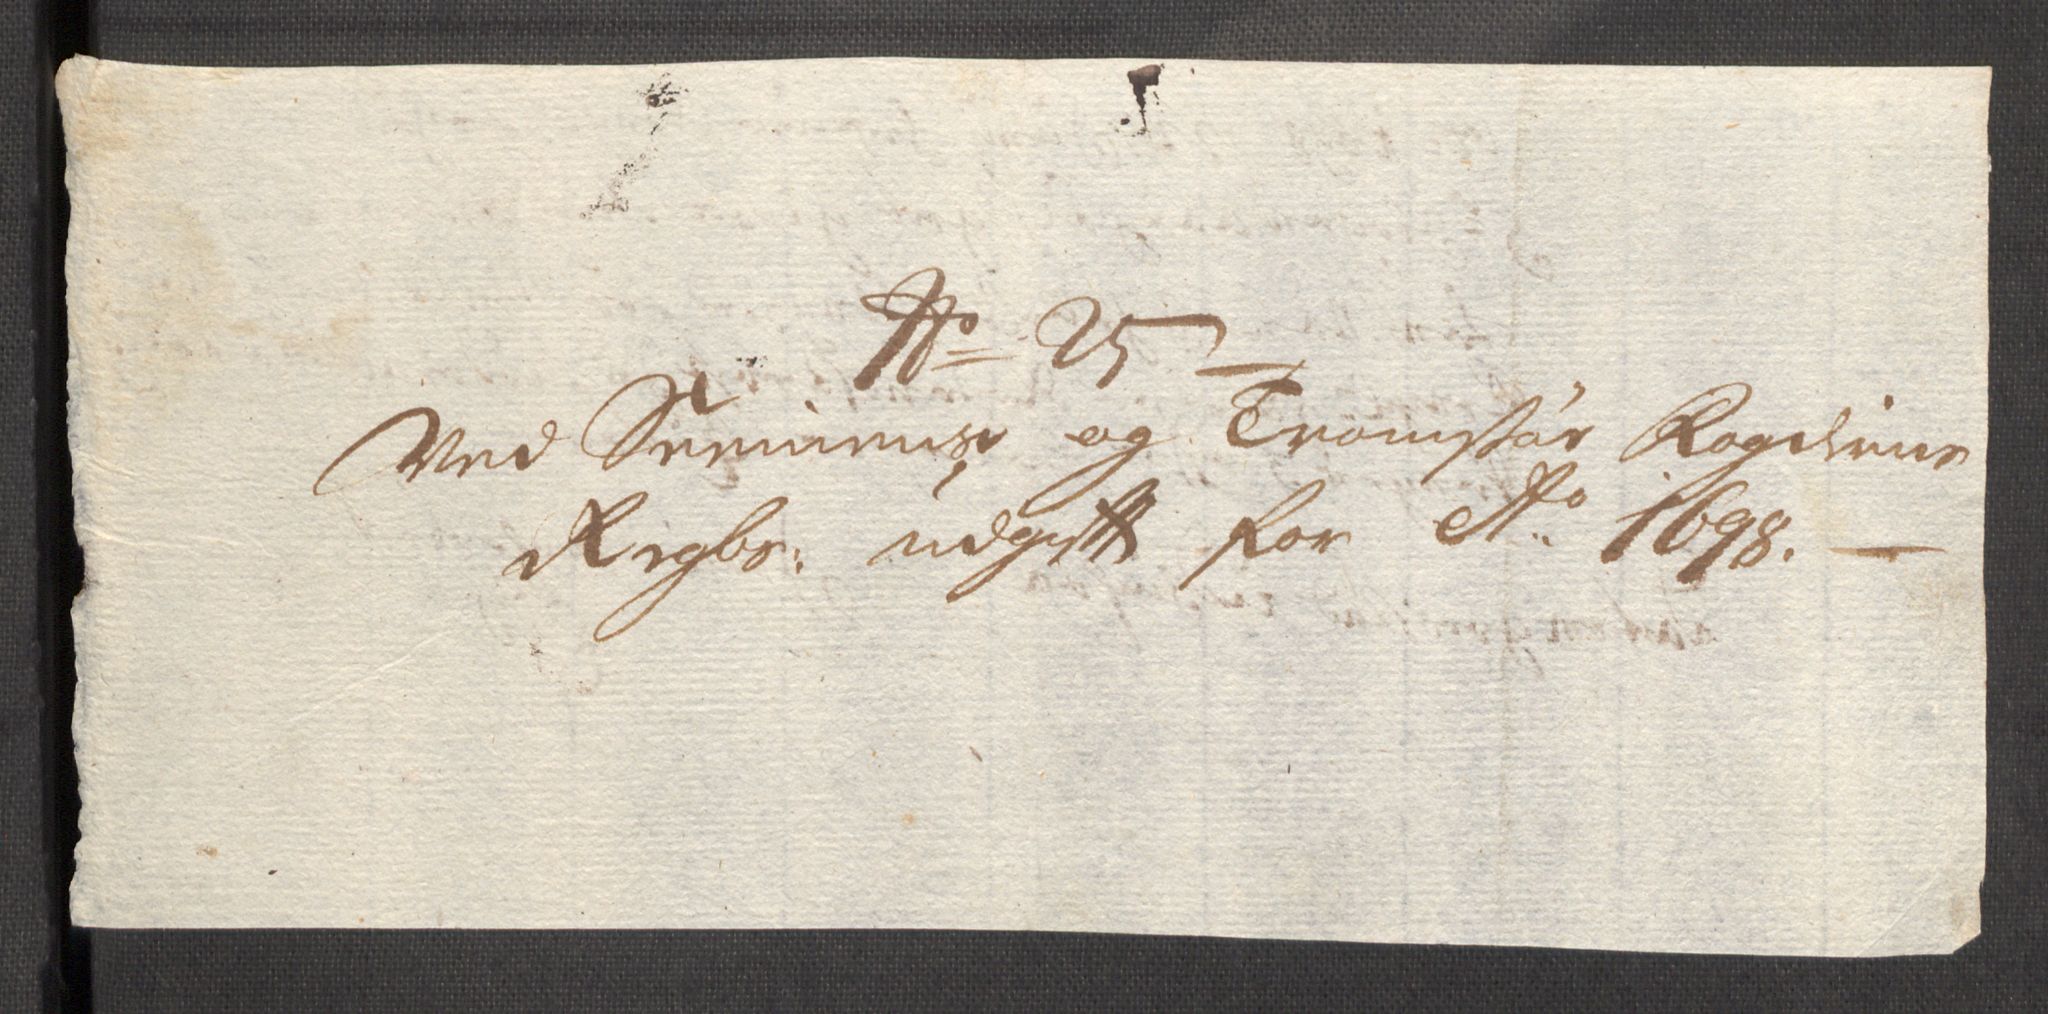 No 25
Ved Senniens og Tromsøes Fogderies
Regbs: udgifft for Ao 1698.